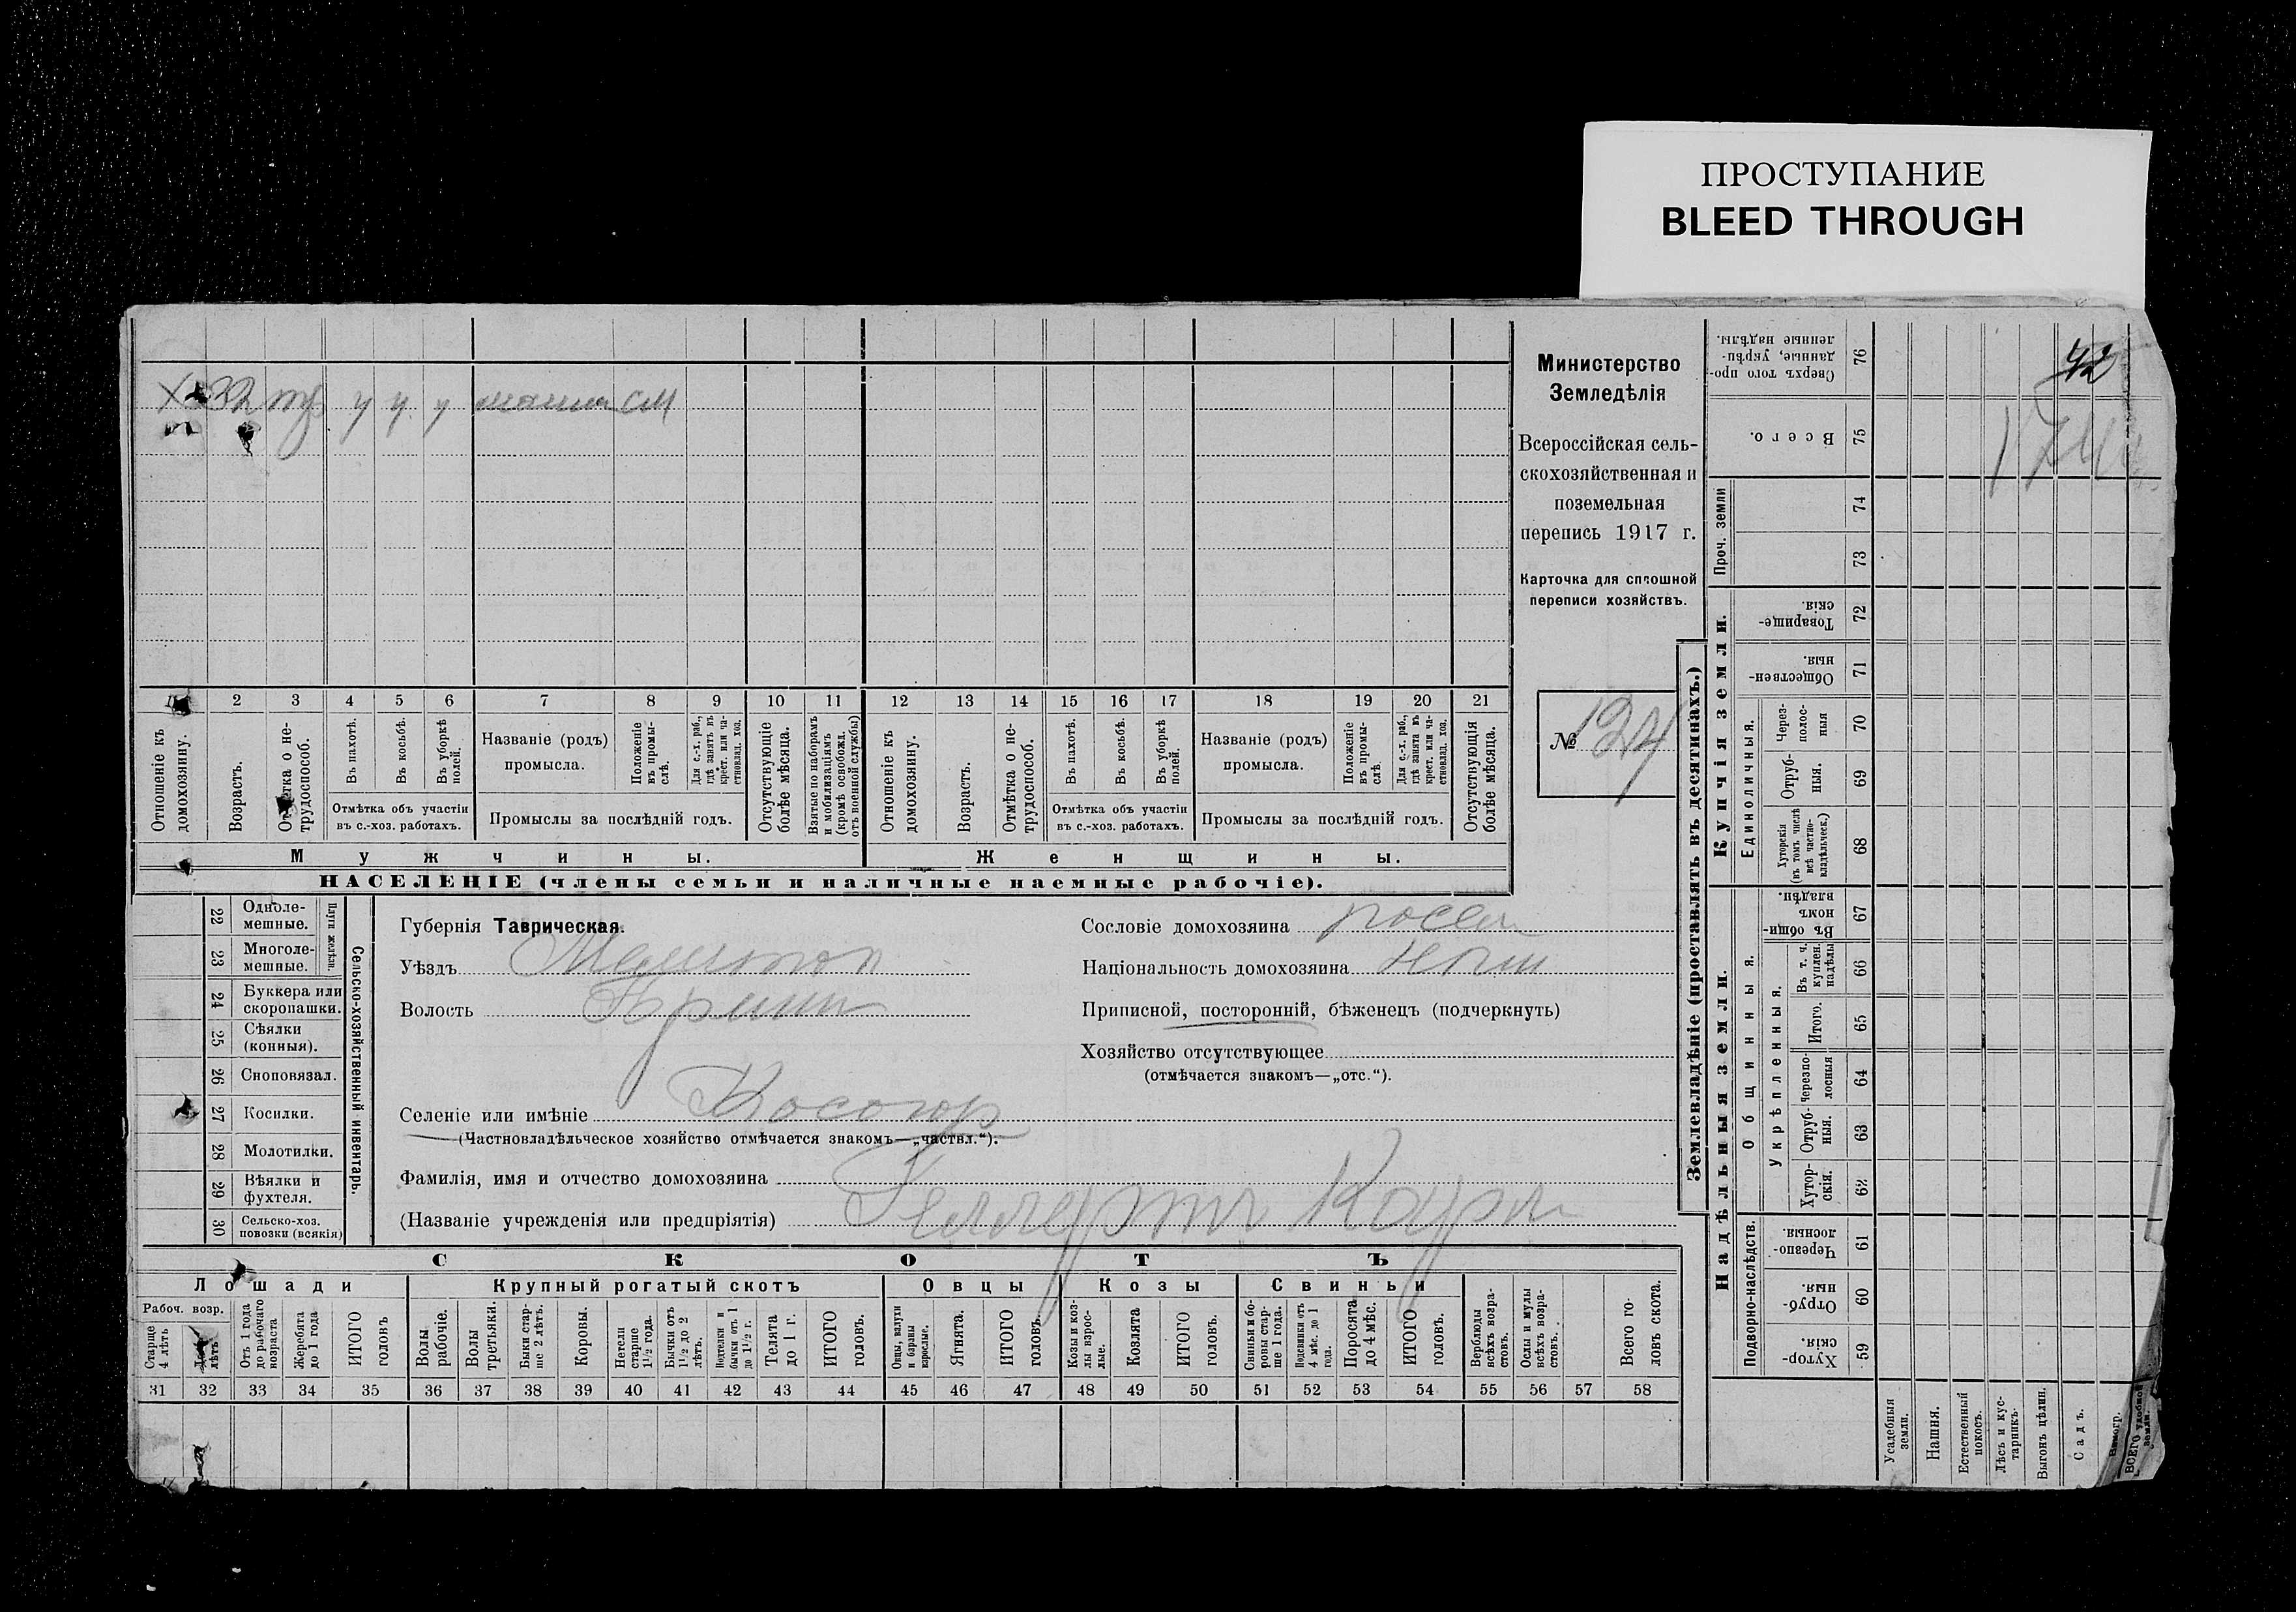 ПРОСТУПАНИЕ
BLEED THROUGH
Х 32 тр у у у машин см
1 2 3 4 5 6 7 8 9 10 11 12 13 14 15 16 17 18 19 20 21
Отношеніе къ домохозяину.
Возрастъ.
Отмѣтка о не-трудоспособ.
Въ пахотѣ.
Въ косьбѣ.
Въ уборкѣ полей.
Отмѣтка объ участіи
въ с.-хоз. работахъ.
Названіе (родъ)
промысла.
Положеніе въ промы-слѣ.
Для с.-х. раб., гдѣ занятъ въ крест. или ча-стновлад. хоз.
Промыслы за послѣдній годъ.
Отсутствующіе болѣе мѣсяца.
Взятые по наборамъ и мобилизаціямъ (кромѣ освобожд. отъ военной службы)
Отношеніе къ домохозяину.
Возрастъ.
Отмѣтка о не-трудоспособ.
Въ пахотѣ.
Въ косьбѣ.
Въ уборкѣ полей.
Отмѣтка объ участіи
въ с.-хоз. работахъ.
Названіе (родъ)
промысла.
Положеніе въ промы-слѣ.
Для с.-х. раб., гдѣ занята въ крест. или ча-стновлад. хоз.
Промыслы за послѣдній годъ.
Отсутствующія болѣе мѣсяца.
Мужчины.
Женщины.
НАСЕЛЕНІЕ (члены семьи и наличные наемные рабочіе).
Министерство
Земледѣлія
Всероссійская сель-
скохозяйственная и
поземельная
перепись 1917 г.
Карточка для сплошной
переписи хозяйствъ.
№ 124
22 Одноле-мешные.
23 Многоле-мешные.
Плуги желѣзн.
24 Буккера или скоропашки.
25 Сѣялки (конныя).
26 Сноповязал.
27 Косилки.
28 Молотилки.
29 Вѣялки и фухтеля.
30 Сельско-хоз. повозки (всякія)
Сельско-хозяйственный инвентарь.
Губернія Таврическая.
Уѣздъ
Волость
Селеніе или имѣніе Косогор
(Частновладѣльческое хозяйство отмѣчается знакомъ—„частвл.“).
Фамилія, имя и отчество домохозяина
(Названіе учрежденія или предпріятія) Геллертъ Карл
Сословіе домохозяина посел
Національность домохозяина нѣм
Приписной, посторонній, бѣженецъ (подчеркнуть)
Хозяйство отсутствующее
(отмѣчается знакомъ—„отс.“).
СКОТЪ
Лошади
Крупный рогатый скотъ
Овцы
Козы
Свиньи
Рабоч. возр.
Старше 4 лѣтъ
лѣтъ
Отъ 1 года до рабочаго возраста
Жеребята до 1 года
ИТОГО головъ
Волы рабочіе.
Волы третьяки.
Быки стар-ше 2 лѣтъ.
Коровы.
Нетели старше 1½ года.
Бычки отъ 1½ до 2 лѣтъ.
Подтелки и бычки отъ 1 до 1½ г.
Телята до 1 г.
ИТОГО головъ.
Овцы, валухи и бараны взрослые.
Ягнята.
ИТОГО головъ.
Козы и коз-лы взрос-лые.
Козлята
ИТОГО головъ.
Свиньи и бо-ровы стар-ше 1 года.
Подсвинки отъ 4 мѣс. до 1 года.
Поросята до 4 мѣс.
ИТОГО головъ.
Верблюды всѣхъ возра-стовъ.
Ослы и мулы всѣхъ возра-стовъ.
Всего го-ловъ скота.
31 32 33 34 35 36 37 38 39 40 41 42 43 44 45 46 47 48 49 50 51 52 53 54 55 56 57 58
Землевладѣніе (проставлять въ десятинахъ.)
Купчія земли.
Надѣльныя земли.
Сверхъ того про-данные, укрѣп-ленные надѣлы. 76
Всего. 75
Проч. земли 74 73
Товарище-скія. 72
Обществен-ныя. 71
Единоличныя.
Через-полос-ныя 70
Отруб-ныя. 69
Хуторскія (въ томъ числѣ всѣ частно-владѣльческ.) 68
Общинныя.
Въ общи-номъ владѣн. 67
Укрѣпленныя.
Въ т. ч. куплен. надѣлы 66
Итого. 65
Черезпо-лосныя 64
Отруб-ныя. 63
Хутор-скія. 62
Подворно-наслѣдств.
Черезпо-лосныя. 61
Отруб-ныя. 60
Хутор-скія. 59
Усадебныя земли.
Пашня.
Естественный покосъ.
Лѣсъ и кус-тарникъ.
Выгонъ цѣлин.
Садъ.
Виногр.
ВСЕГО удобной земли.
42